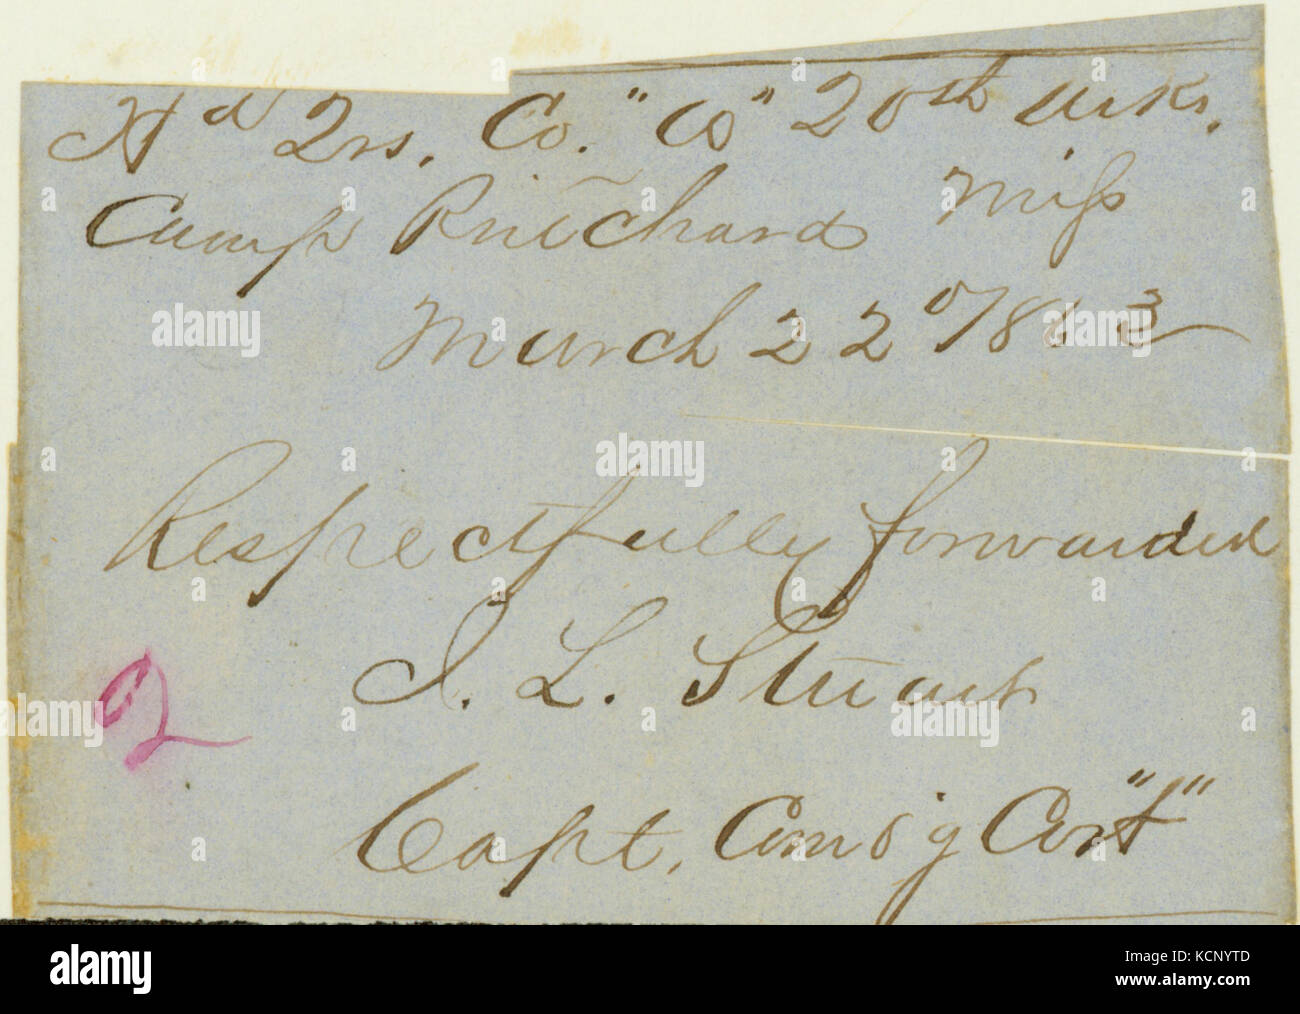 Hd Qrs. Co. " " 20th Arks.
Camp Pritchard Miss
March 22d 1863
Respectfully forwarded
J. L. Stuart
Capt. Comd'g Co "
2
alamy
alamy
Image ID: KCNYTD
www.alamy.com